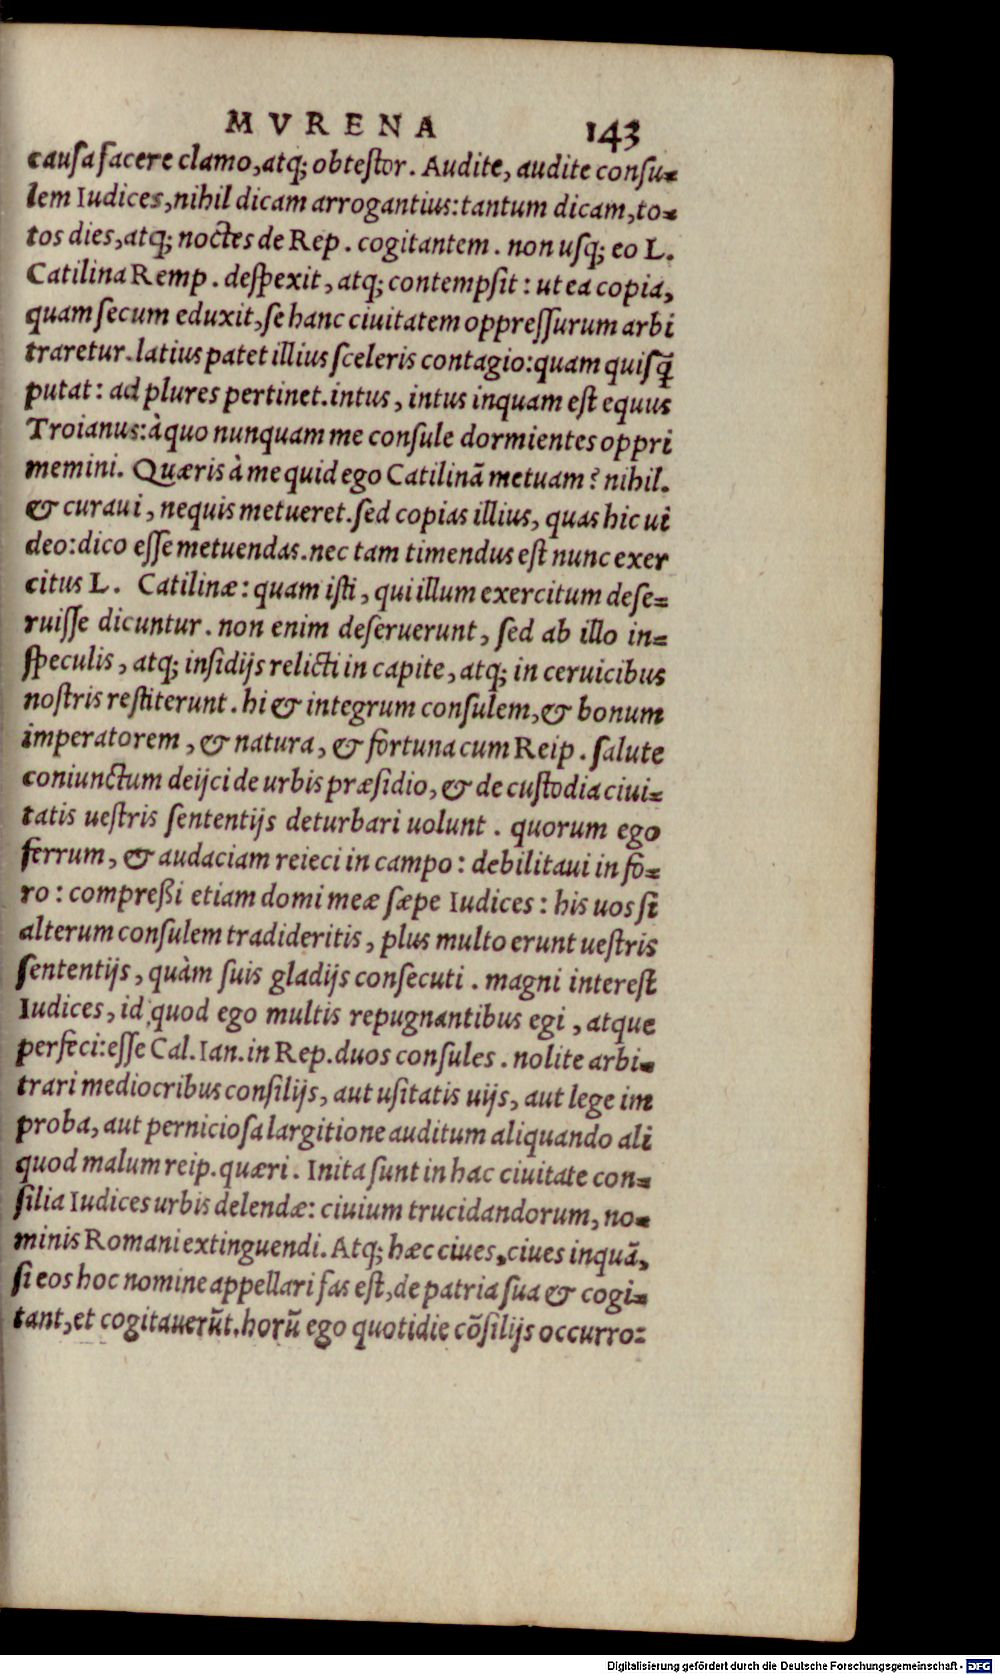 MVRENA 143
causa facere clamo, atq; obtestor. Audite, audite consu-
lem Iudices, nihil dicam arrogantius: tantum dicam, to-
tos dies, atq; noctes de Rep. cogitantem. non usq; eo L.
Catilina Remp. despexit, atq; contempsit: ut ea copia,
quam secum eduxit, se hanc ciuitatem oppressurum arbi
traretur. latius patet illius sceleris contagio: quam quisq̃
putat: ad plures pertinet. intus, intus inquam est equus
Troianus: à quo nunquam me consule dormientes oppri
memini. Quæris à me quid ego Catilinã metuam? nihil.
& curaui, nequis metueret. sed copias illius, quas hic ui
deo: dico esse metuendas. nec tam timendus est nunc exer
citus L. Catilinæ: quam isti, qui illum exercitum dese-
ruisse dicuntur. non enim deseruerunt, sed ab illo in-
speculis, atq; insidijs relicti in capite, atq; in ceruicibus
nostris restiterunt. hi & integrum consulem, & bonum
imperatorem, & natura, & fortuna cum Reip. salute
coniunctum deijci de urbis præsidio, & de custodia ciui-
tatis uestris sententijs deturbari uolunt. quorum ego
ferrum, & audaciam reieci in campo: debilitaui in fo-
ro: compreßi etiam domi meæ sæpe Iudices: his uos si
alterum consulem tradideritis, plus multo erunt uestris
sententijs, quàm suis gladijs consecuti. magni interest
Iudices, id quod ego multis repugnantibus egi, atque
perfeci: esse Cal. Ian. in Rep. duos consules. nolite arbi-
trari mediocribus consilijs, aut usitatis uijs, aut lege im
proba, aut perniciosa largitione auditum aliquando ali
quod malum reip. quæri. Inita sunt in hac ciuitate con-
silia Iudices urbis delendæ: ciuium trucidandorum, no-
minis Romani extinguendi. Atq; hæc ciues, ciues inquã,
si eos hoc nomine appellari fas est, de patria sua & cogi-
tant, et cogitauerũt. horũ ego quotidie cõsilijs occurro:
Digitalisierung gefördert durch die Deutsche Forschungsgemeinschaft - DFG